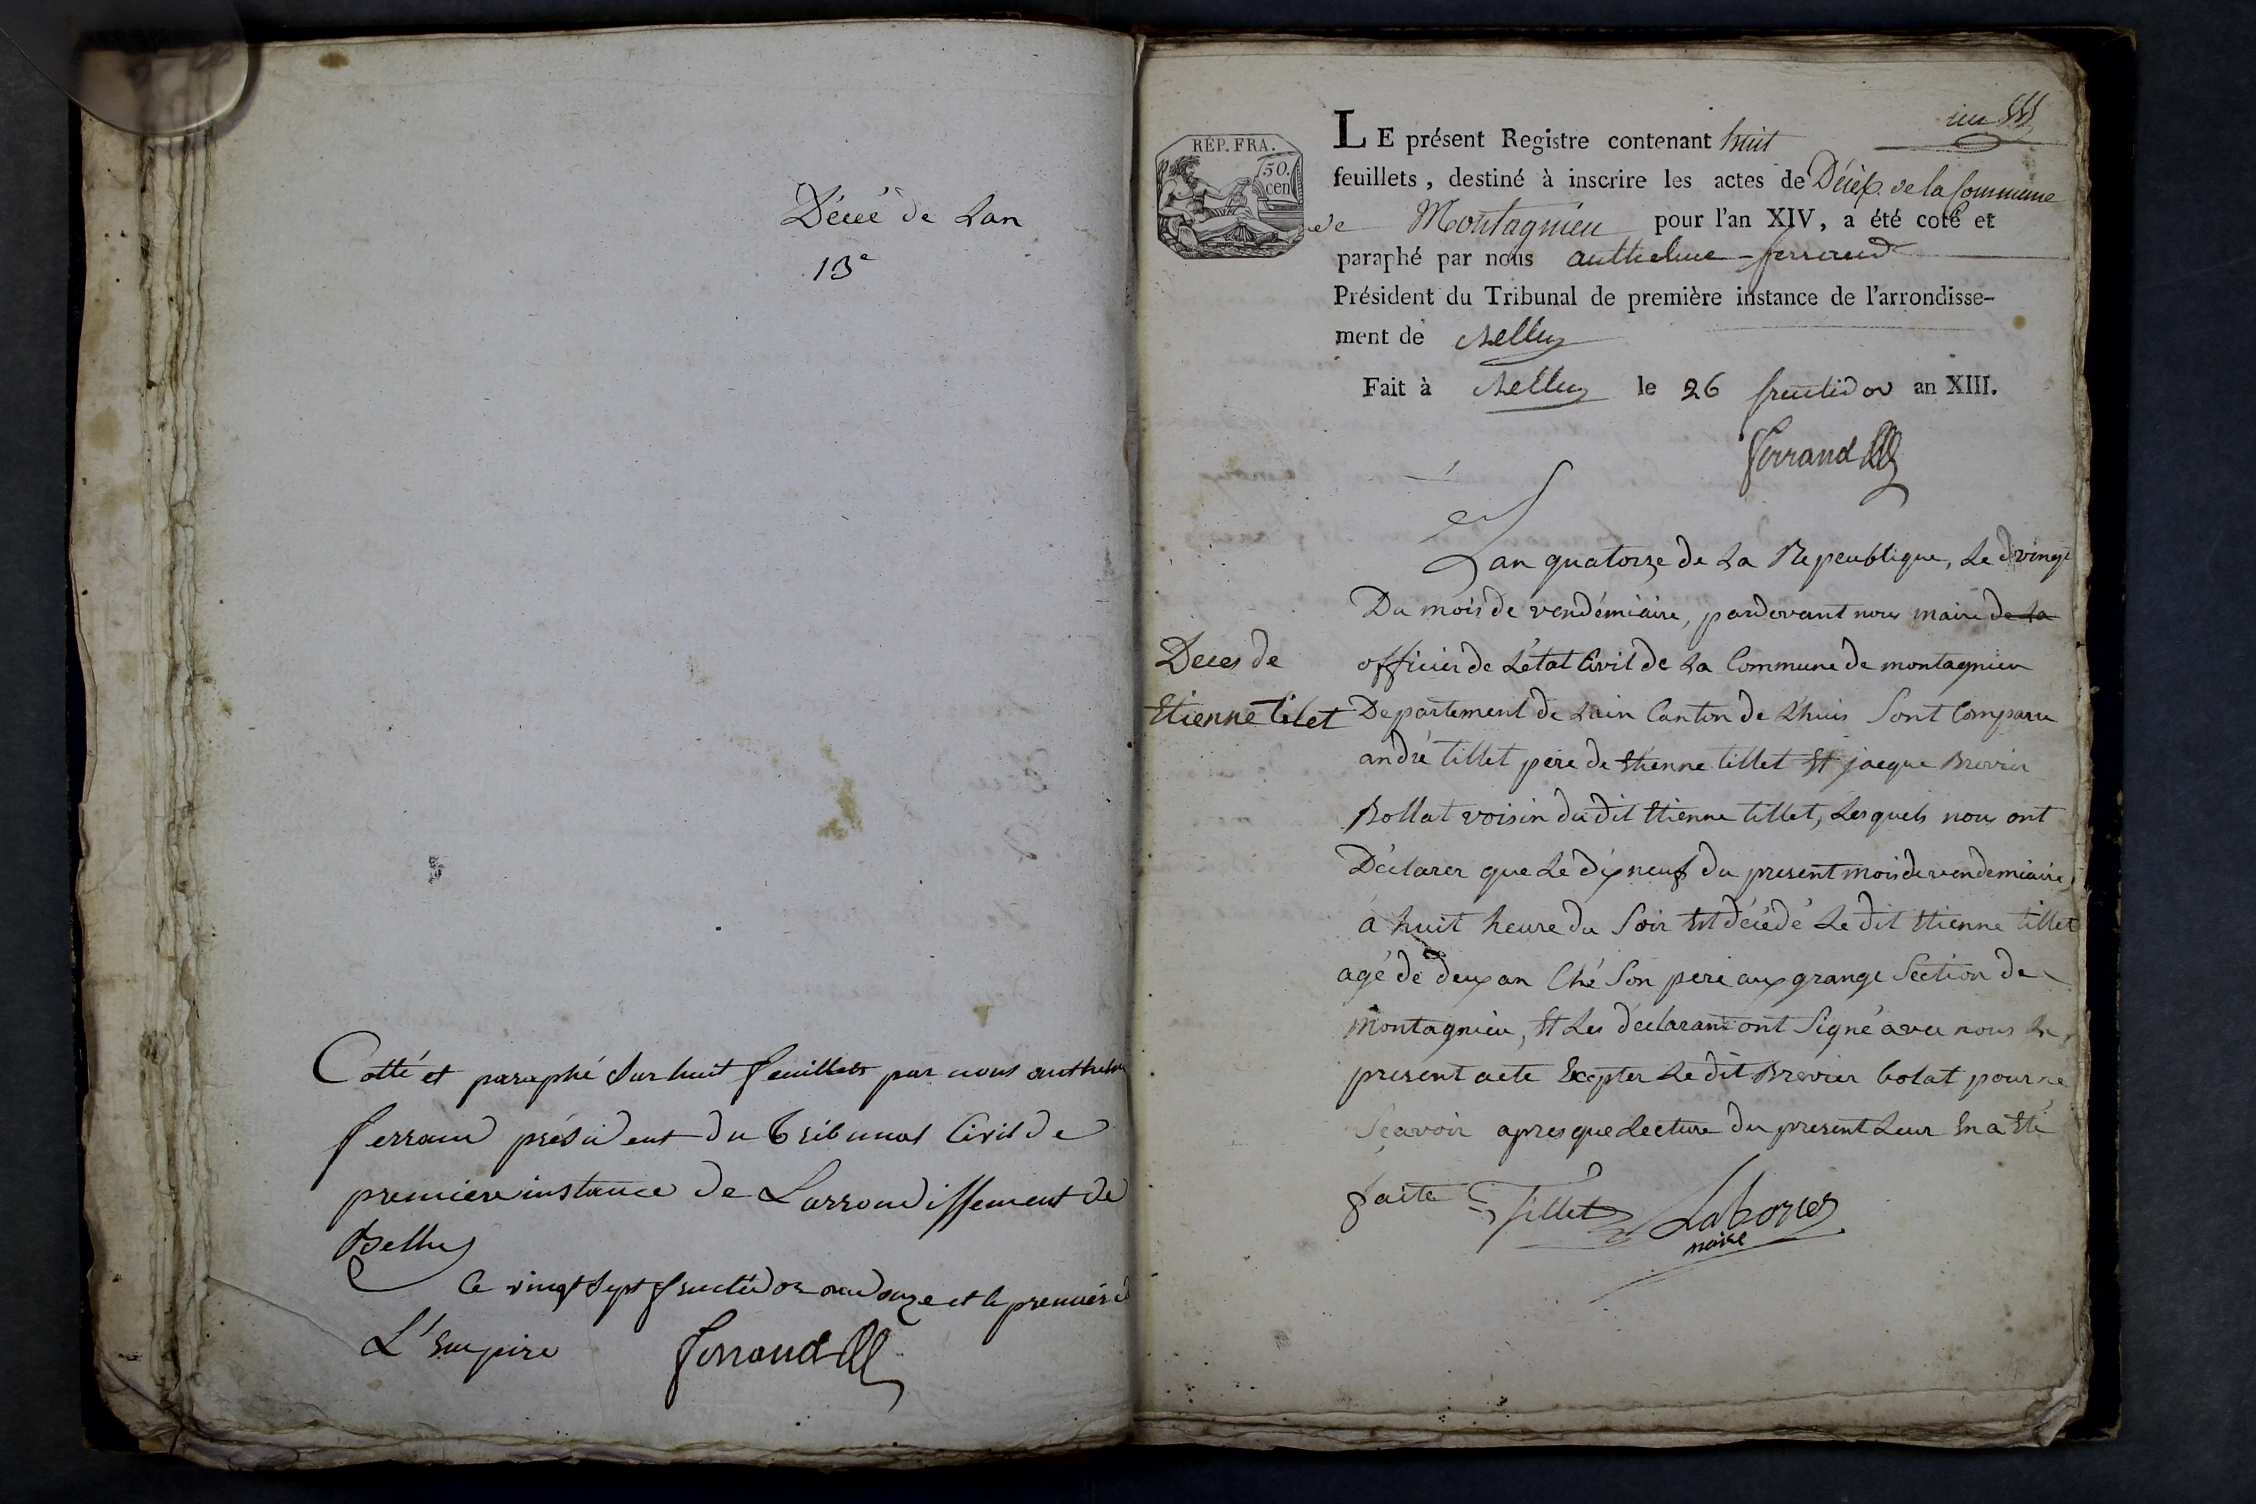 Décé de Lan
13e
Cotté et paraphé Sur huit feuillets par nous anthelme
ferrand président du Tribunal Civil de
premiere instance de Larrondissement de
Belley
Ce vingt Sept fructidor an douze et le premier de
L'Empire Ferrand
REP. FRA.
50.
cen
un
LE présent Registre contenant huit
feuillets, destiné à inscrire les actes de Décès de la Commune
de Montagnieu pour l'an XIV, a été coté et
paraphé par nous anthelme ferrand
Président du Tribunal de première instance de l'arrondisse-
ment de Belley
Fait à Belley le 26 fructidor an XIII.
Ferrand
Lan quatorze de La Repeublique, Le vingt
Du mois de vendémiaire, pardevant nous maire de La
officier de Létat Civil de La Commune de montagnieu
Departement de Lain Canton de Lhuis Sont Comparu
andré tillet pere de Etienne tillet Et jacque Brevier
Bollat voisin du dit Etienne tillet, Lesquels nous ont
Déclarer que Le dixneuf du present mois de vendemiaire,
a huit heure du Soir Est décédé Le dit Etienne tillet
agé de deux an Ché Son pere aux grange Section de
Montagnieu, Et Les déclarant ont Signé avec nous Le
present acte Excepter Le dit Brevier bolat pour ne
Sçavoir apres que Lecture du present Leur En a Eté
faite Tillet Laborier
maire
Deces de
Etienne tilet